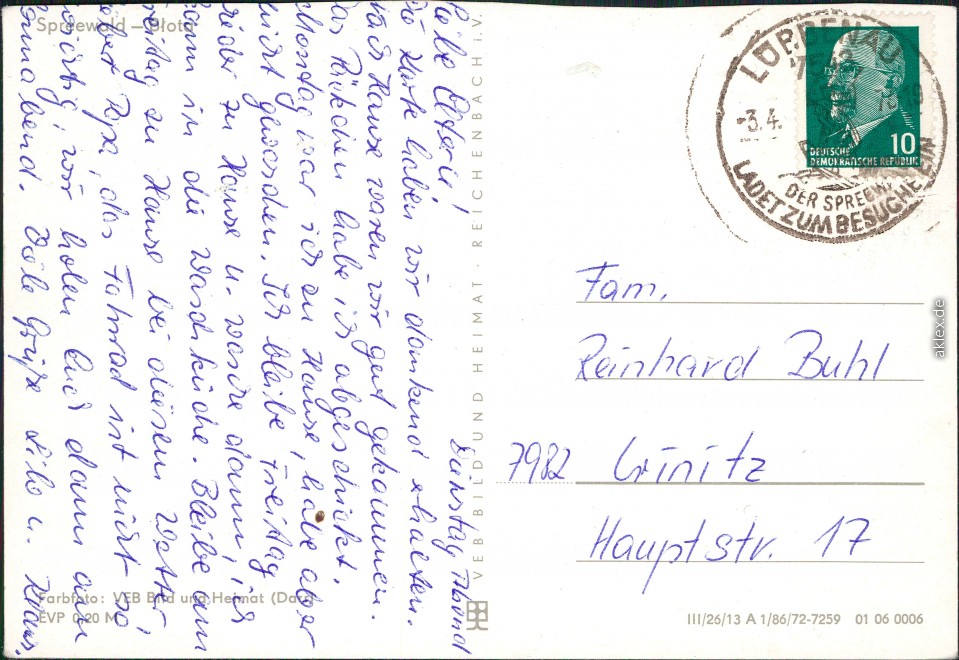 Spreewald – Plota
Dienstag Abend
Liebe Osteri!
Die Karte haben wir dankend erhalten.
nach Hause waren wir gut gekommen.
das Päckchen habe ich abgeschickt.
Montag war ich zu Hause, habe aber
nicht gewaschen. Ich bleibe Freitag
wieder zu Hause u. wasche dann, ich
kann in die Waschküche. Bleibe am
Freitag zu Hause bei diesem Wetter,
das Fahrrad ist nicht so
wichtig, wir holen Euch dann am
Sonnabend. Viele Grüße Lilo u. Klaus.
Farbfoto: VEB Bild und Heimat
EVP 0,20 M
VEB BILD UND HEIMAT · REICHENBACH I. V.
LÜBBENAU
-3.4.
DER SPREEW
LADET ZUM BESUCHE EIN
10
DEUTSCHE
DEMOKRATISCHE REPUBLIK
Fam.
Reinhard Buhl
7982 Crinitz
Hauptstr. 17
III/26/13 A 1/86/72-7259 01 06 0006
aklex.de